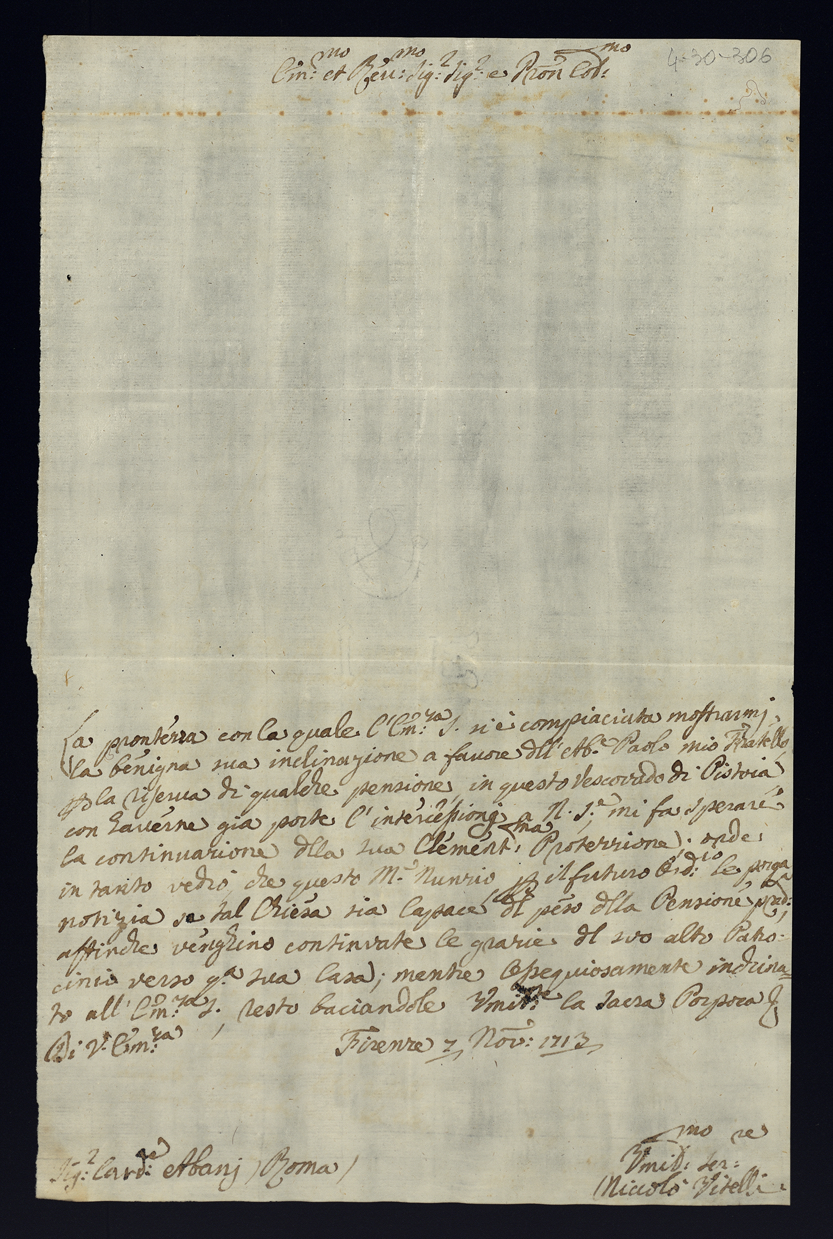 4-30-306
Em:mo et Reu:mo Sig:r Sig:r e Pron Col:mo
La prontezza con la quale l'Em:za S. si è compiaciuta mostrarmj
la benigna sua inclinazione a favore dll' Ab:e Paolo mio Fratello,
la riserva di qualche pensione in questo Vescovado di Pistoia
con haverne gia porte l'intercessionj a N. S.re mi fa sperare
la continuazione dlla sua Clement:ma Protezzione; onde
in tanto vedrò che questo M:r Nunzio il futuro Ord:rio le porga
notizia se tal Chiesa sia capace dl peso dlla Pensione pred:a
affinche venghino continuate le grazie dl suo alto Patro-
cinio verso q:a sua Casa; mentre ossequiosamente inchina-
to all' Em:za S., resto baciandole Vmilt:e la Sacra Porpora
Di V. Em:za Firenze 7 Nov: 1713
Sig:r Card:le Albanj / Roma /
Vmid:mo Ser:re
Niccolò Vitelli